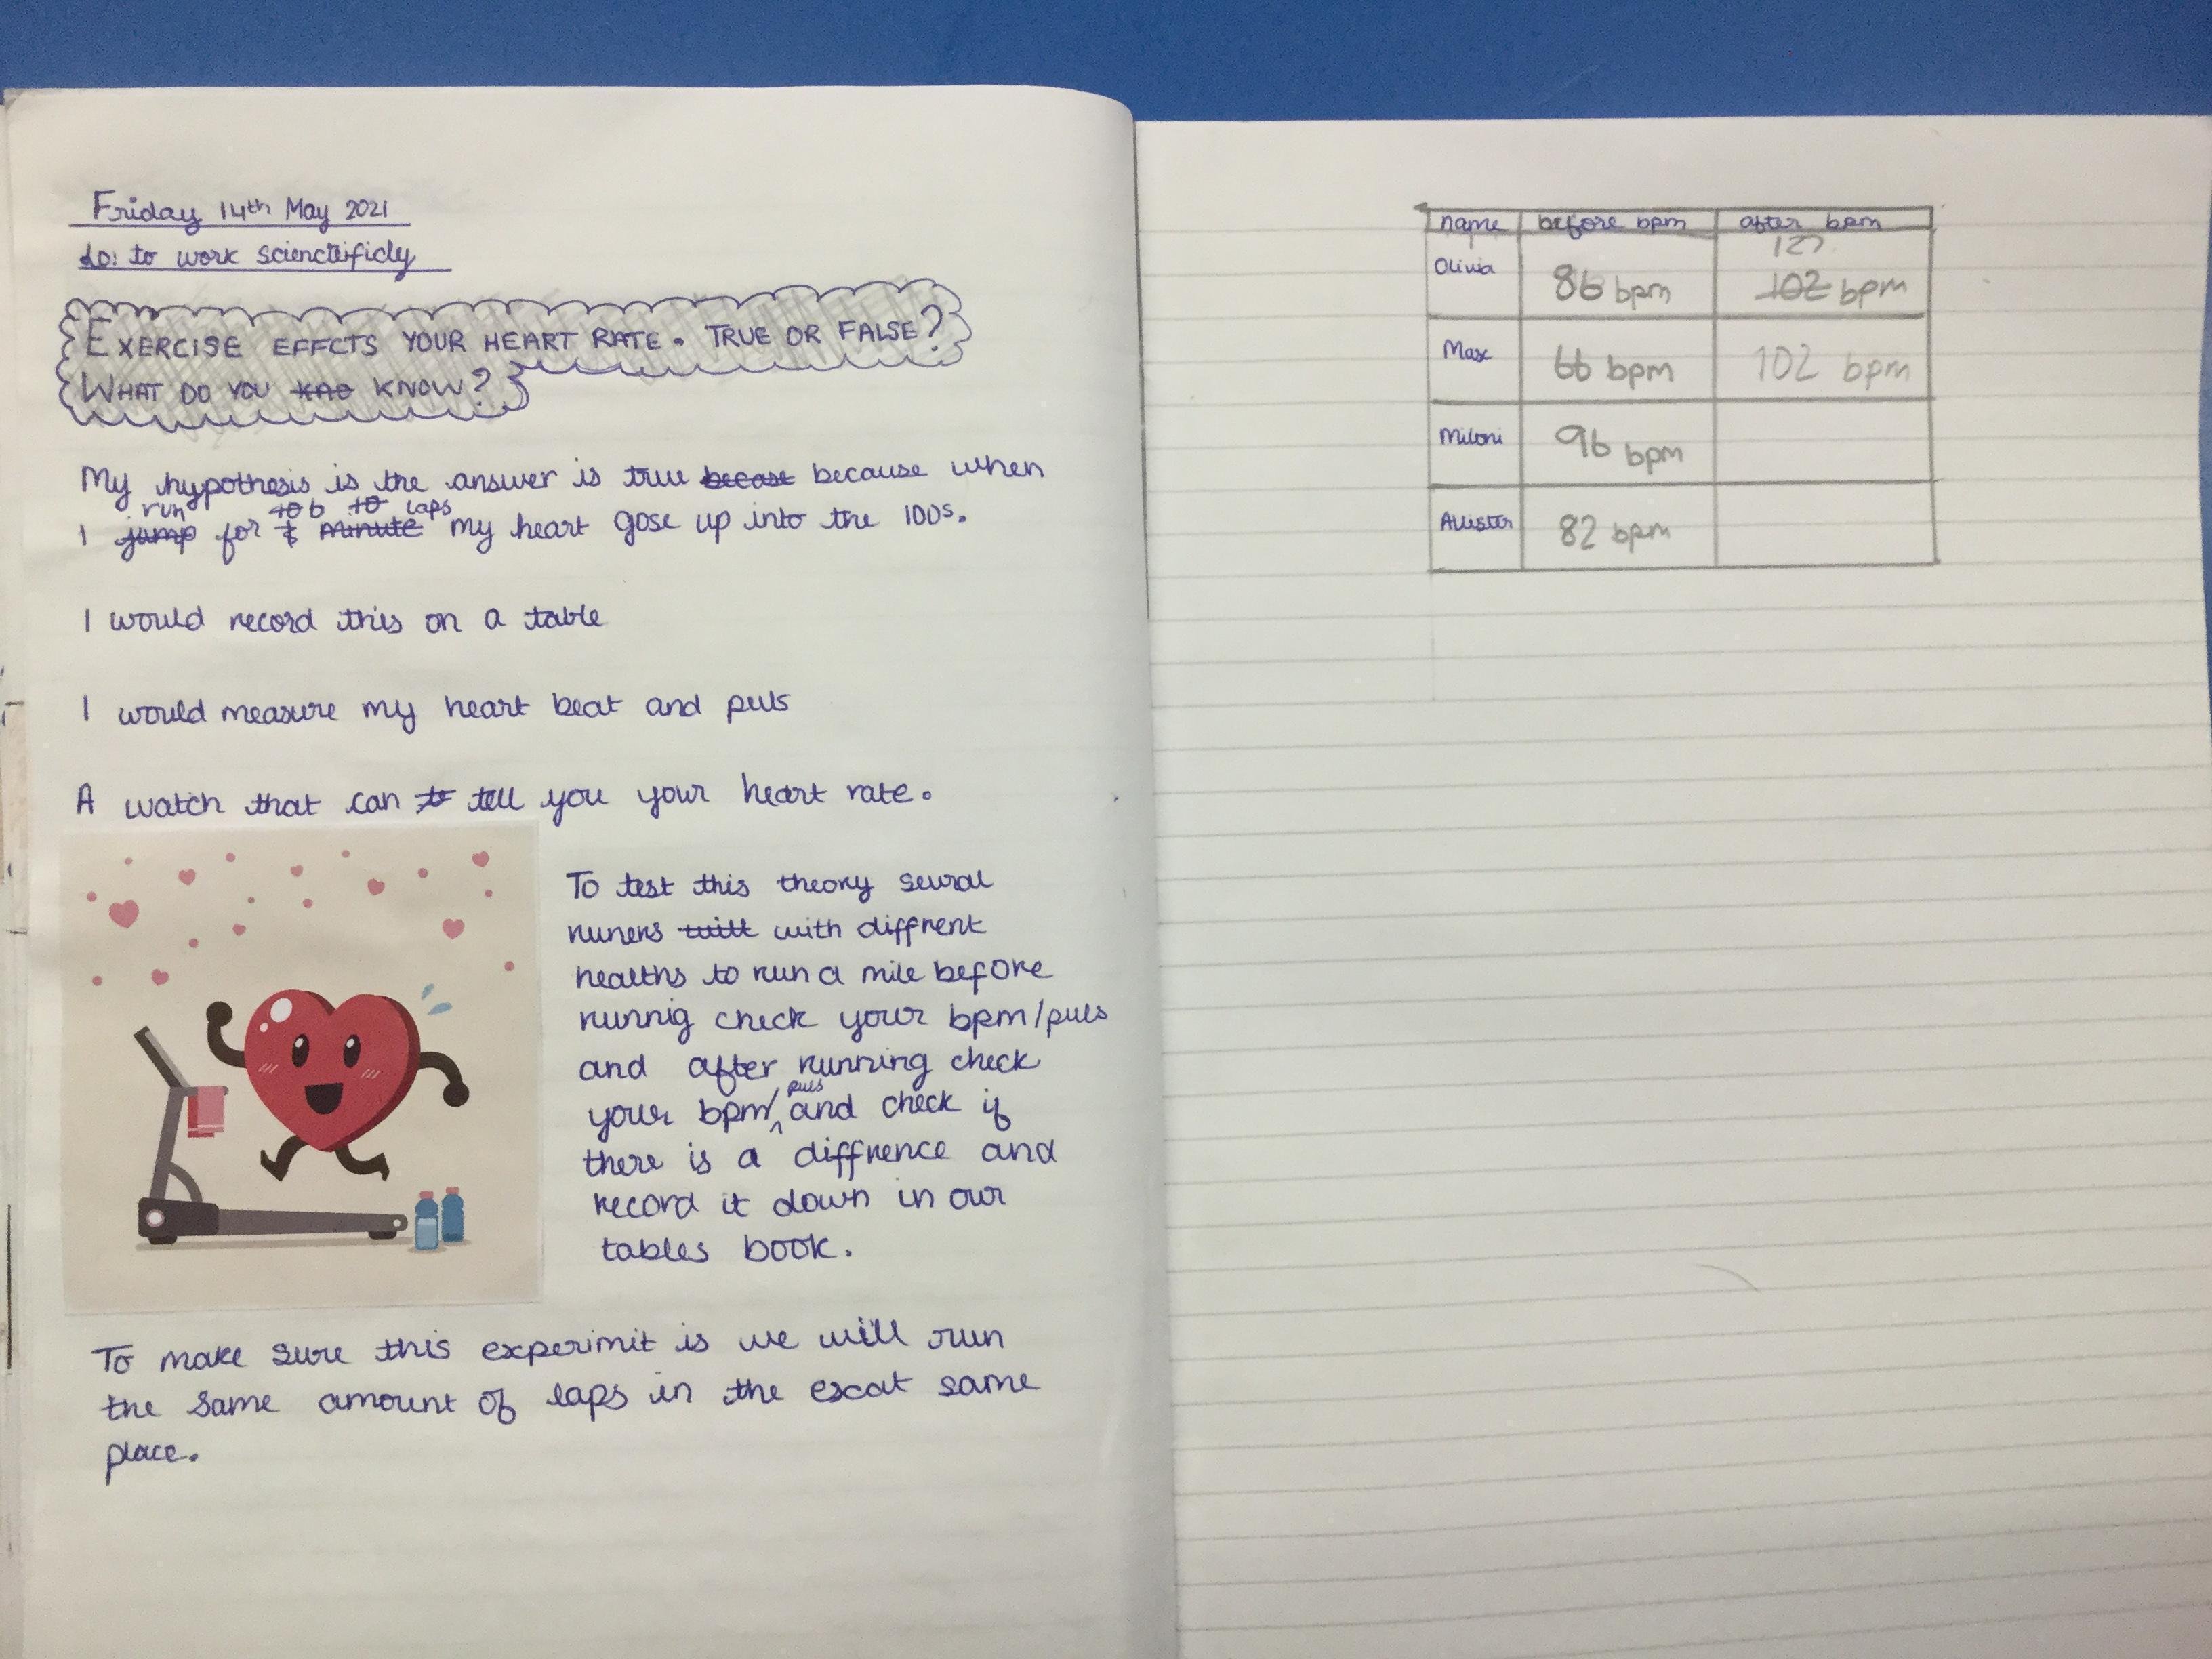 Friday 14th May 2021
Lo: to work sciencteificly
EXERCISE EFFCTS YOUR HEART RATE. TRUE OR FALSE?
WHAT DO YOU KNOW?
My hypothesis is the answer is true becase because when
run 10 6 10 laps
I jump for minute my heart gose up into the 100s.
I would record this on a table
I would measure my heart beat and puls
A watch that can to tell you your heart rate.
To test this theory sevral
runers will with diffrent
healths to run a mile before
runnig check your bpm/puls
and after running check
puls
your bpm/ and check if
there is a diffrence and
record it down in our
tables book.
To make sure this experimit is we will run
the same amount of laps in the excat same
place.
name before bpm after bpm
127
Olivia 86 bpm 102 bpm
Max 66 bpm 102 bpm
Miloni 96 bpm
Allister 82 bpm